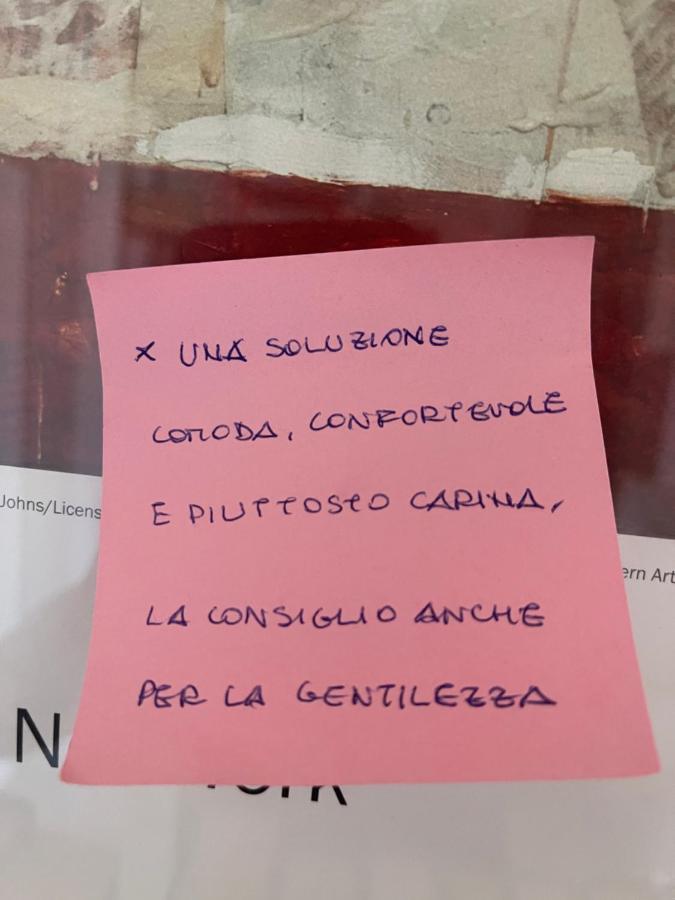 x UNA SOLUZIONE
COMODA, CONFORTEVOLE
E PIUTTOSTO CARINA,
Johns/Licens
ern Art
LA CONSIGLIO ANCHE
PER LA GENTILEZZA
N